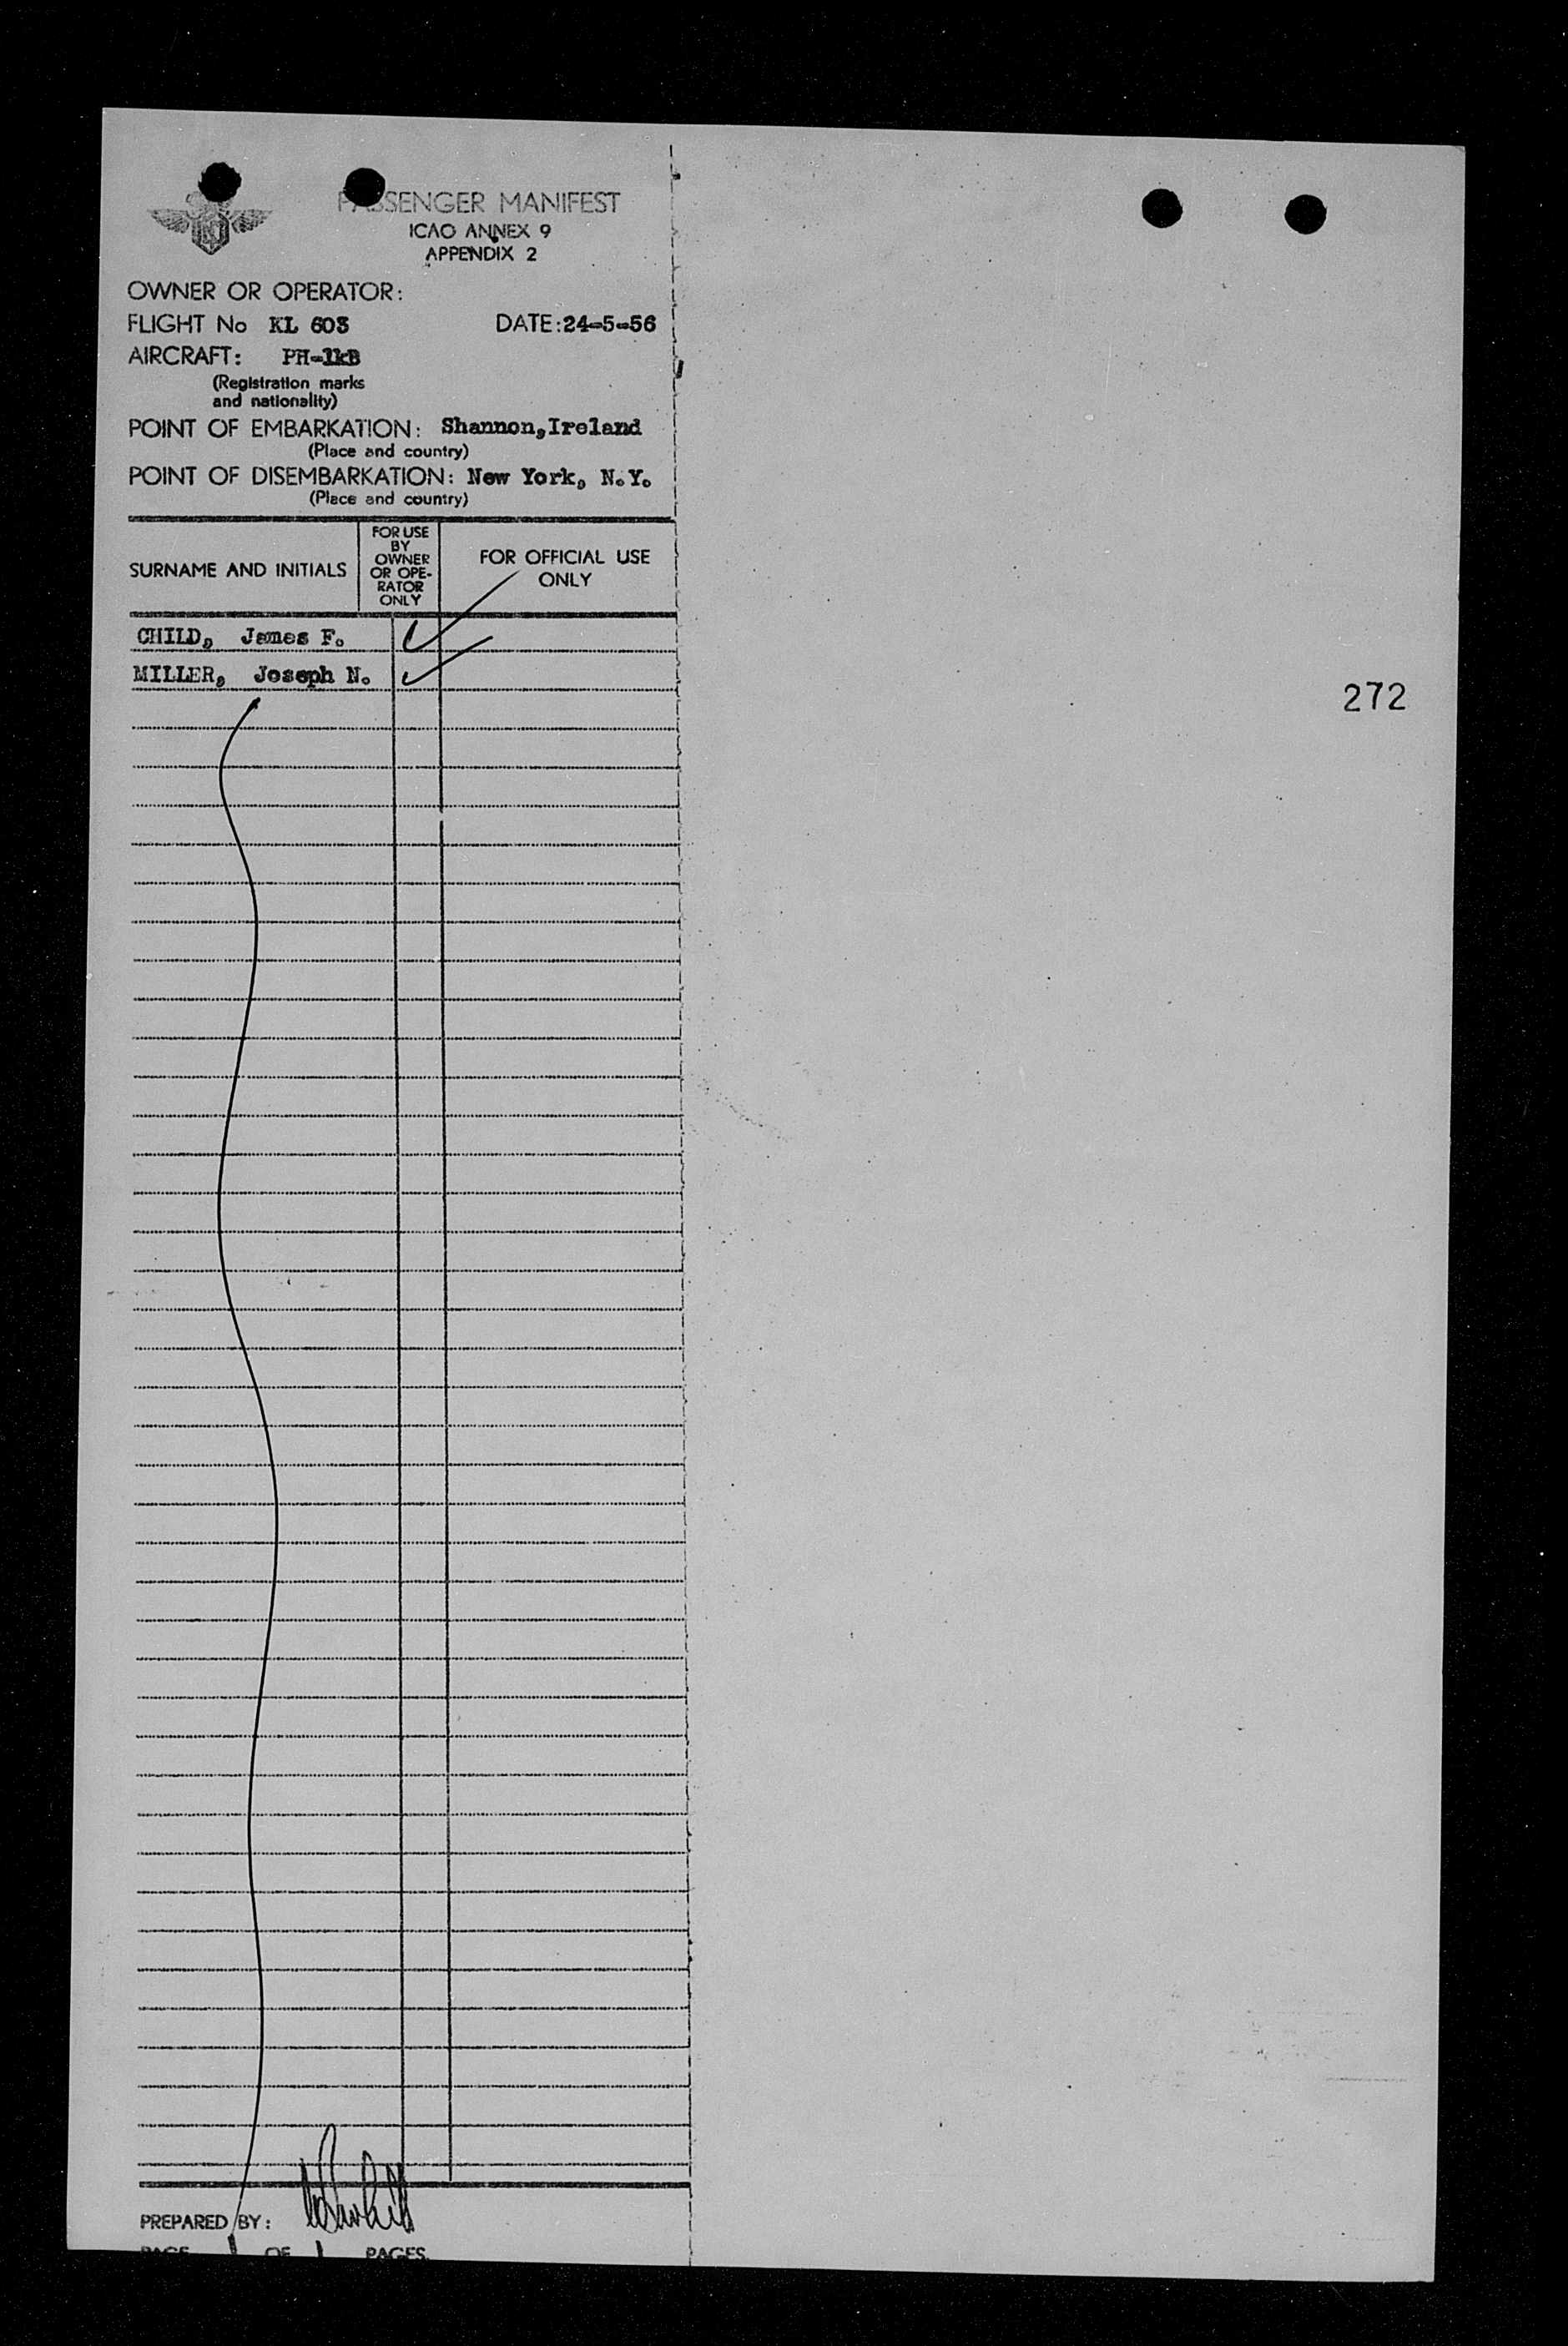 PASSENGER MANIFEST
ICAO ANNEX 9
APPENDIX 2
OWNER OR OPERATOR:
FLIGHT No KL 603 DATE:24-5-56
AIRCRAFT: PH-lkB
(Registration marks
and nationality)
POINT OF EMBARKATION: Shannon,Ireland
(Place and country)
POINT OF DISEMBARKATION: New York, N.Y.
(Place and country)
SURNAME AND INITIALS
FOR USE
BY
OWNER
OR OPE-
RATOR
ONLY
FOR OFFICIAL USE
ONLY
CHILD, James F.
MILLER, Joseph N.
272
PREPARED BY:
PAGE 1 OF 1 PAGES